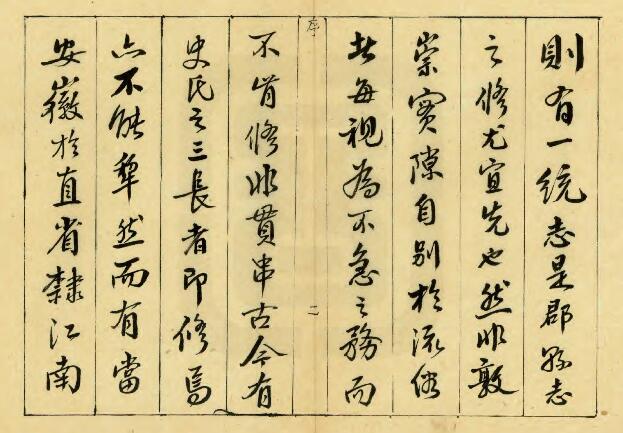 則有一統志是郡縣志
之修尤宜先也然非敦
崇實隙自別於流俗
者每視為不急之務而
序
二
不肯修非貫串古今有
史氏之三長者即修焉
亦不能犂然而有當
安徽於直省隸江南